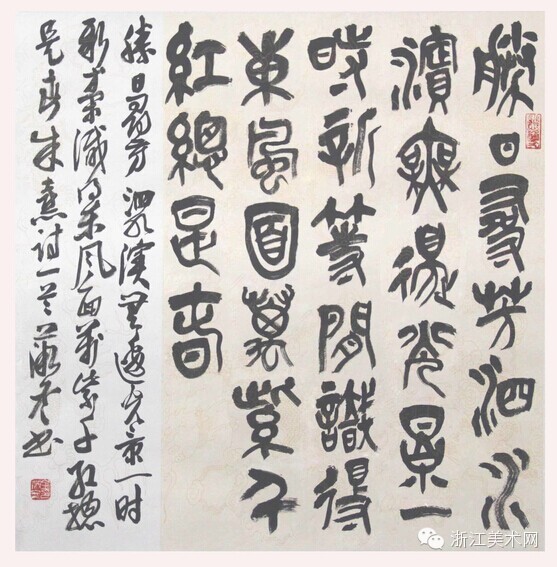 勝日尋芳泗水
濱無邊光景一
時新等閒識得
東風面萬紫千
紅總是春
勝日尋芳泗水濱無邊光景一时
新等識得東风面萬紫千红總
是春朱熹诗一首書
浙江美术网